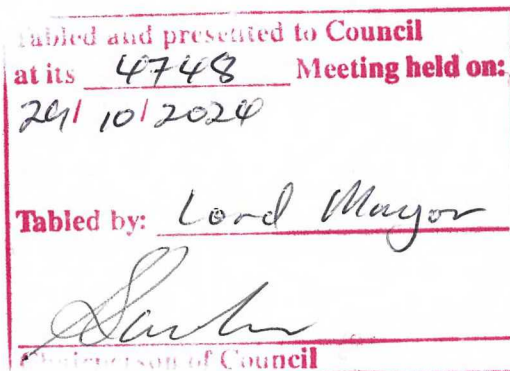 Tabled and presented to Council
at its 4748 Meeting held on:
29/10/2024
Tabled by: Lord Mayor
Chairperson of Council